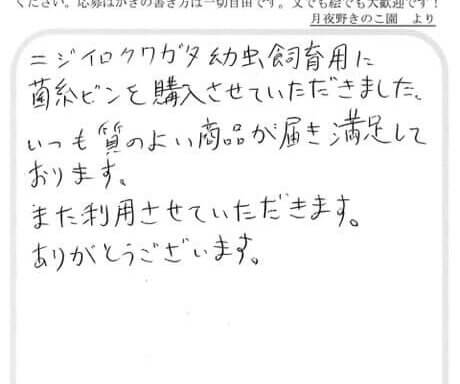 ください。応募はがきの書き方は一切自由です。文でも絵でも大歓迎です！
月夜野きのこ園　より
ニジイロクワガタ幼虫飼育用に
菌糸ビンを購入させていただきました。
いつも質のよい商品が届き満足して
おります。
また利用させていただきます。
ありがとうございます。